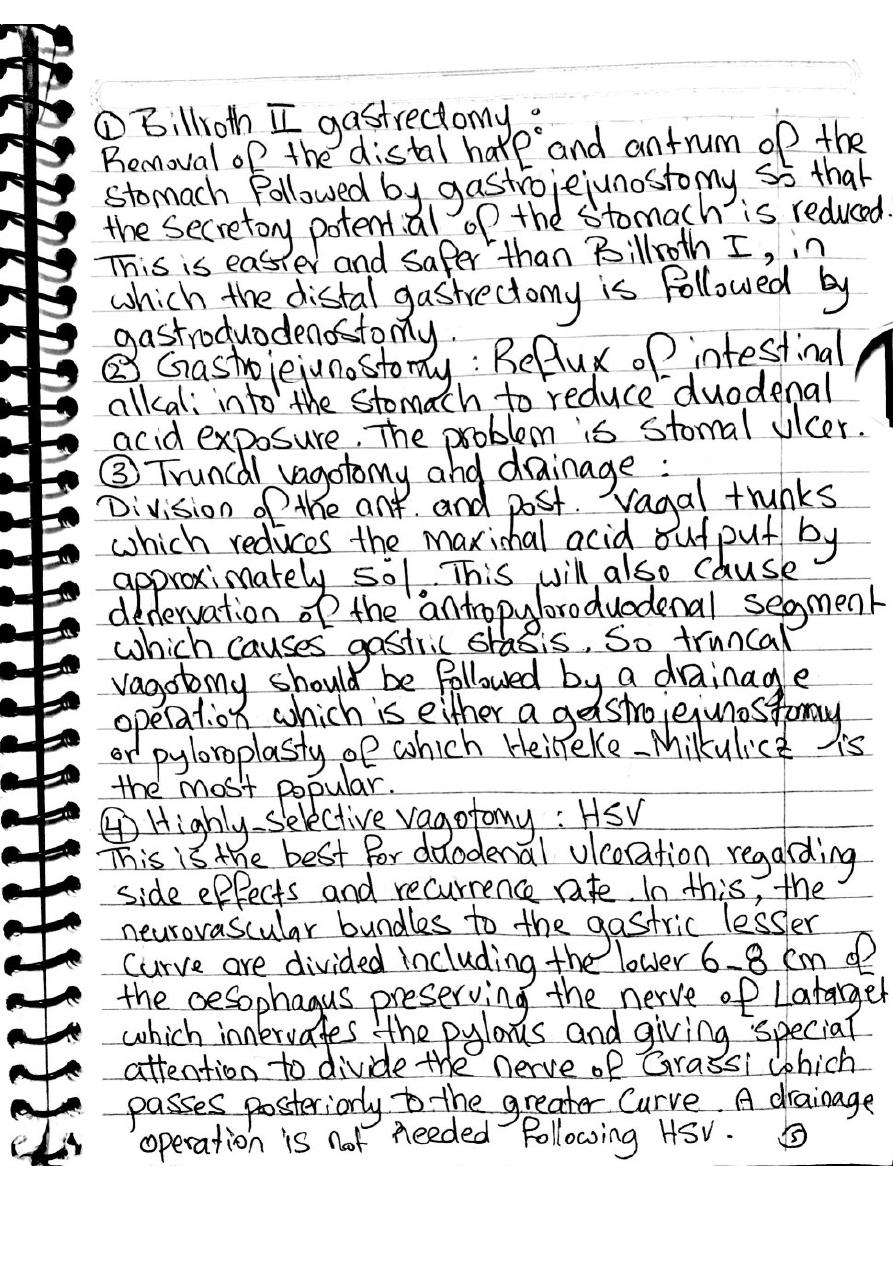 ① Billroth II gastrectomy :
Removal of the distal half and antrum of the
stomach followed by gastrojejunostomy so that
the secretory potential of the stomach is reduced.
This is easier and safer than Billroth I, in
which the distal gastrectomy is followed by
gastroduodenostomy.
② Gastrojejunostomy : Reflux of intestinal
alkali into the stomach to reduce duodenal
acid exposure. The problem is stomal ulcer.
③ Truncal vagotomy and drainage :
Division of the ant. and post. vagal trunks
which reduces the maximal acid output by
approximately 50%. This will also cause
denervation of the antropyloroduodenal segment
which causes gastric stasis. So truncal
vagotomy should be followed by a drainage
operation which is either a gastrojejunostomy
or pyloroplasty of which Heineke-Milkulicz is
the most popular.
④ Highly-selective vagotomy : HSV
This is the best for duodenal ulceration regarding
side effects and recurrence rate. In this, the
neurovascular bundles to the gastric lesser
curve are divided including the lower 6-8 cm of
the oesophagus preserving the nerve of Latarget
which innervates the pylorus and giving special
attention to divide the nerve of Grassi which
passes posteriorly to the greater curve. A drainage
operation is not needed following HSV. ⑤